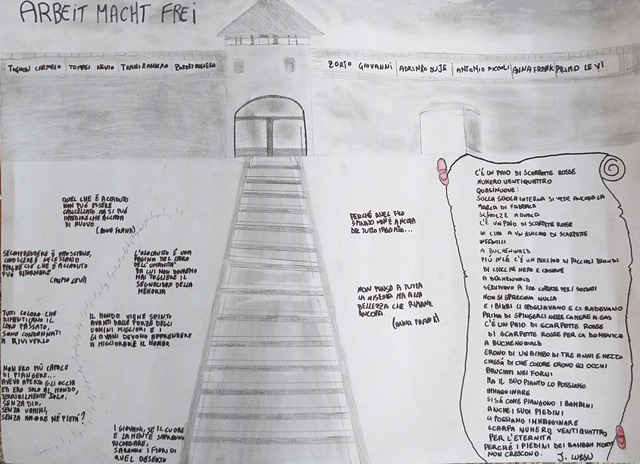 ARBEIT MACHT FREI
TOGNON CARMELO TOMASI NEVIO TRANI RANIERO
ZORTO GIOVANNI ANTONIO PICCOLI ANNA FRANK PRIMO LEVI
QUEL CHE È ACCADUTO
NON PUÒ ESSERE
CANCELLATO MA SI PUÒ
IMPEDIRE CHE ACCADA
DI NUOVO
(ANNA FRANK)
SE COMPRENDERE È IMPOSSIBILE,
CONOSCERE È NECESSARIO
PERCHÉ CIÒ CHE È ACCADUTO
PUÒ RITORNARE
(PRIMO LEVI)
L'OLOCAUSTO È UNA
PAGINA DEL LIBRO
DELL'UMANITÀ
DA CUI NON DOVREMO
MAI TOGLIERE IL
SEGNALIBRO DELLA
MEMORIA
TUTTI COLORO CHE
DIMENTICANO IL
LORO PASSATO,
SONO CONDANNATI
A RIVIVERLO
IL MONDO VIENE SPINTO
AVANTI DALLE FORZE DEGLI
UOMINI MIGLIORI E I
GIOVANI DEVONO APPRENDERE
A MIGLIORARE IL
NON ERO PIÙ CAPACE
DI PIANGERE...
AVEVO APERTO GLI OCCHI
ED ERO SOLO AL MONDO,
TERRIBILMENTE SOLO,
SENZA DIO,
SENZA UOMINI,
SENZA AMORE NÉ PIETÀ?
I GIOVANI, SE IL CUORE
E LA MENTE SAPRANNO
RICORDARE,
SARANNO I FIORI DI
QUEL DESERTO
PERCHÉ QUEL FILO
SPINATO NON È ANCORA
DEL TUTTO TAGLIATO...
NON PENSO A TUTTA
LA MISERIA MA ALLA
BELLEZZA CHE RIMANE
ANCORA
(ANNA FRANK)
C'È UN PAIO DI SCARPETTE ROSSE
NUMERO VENTIQUATTRO
QUASI NUOVE:
SULLA SUOLA INTERNA SI VEDE ANCORA LA
MARCA DI FABBRICA
SCHULZE MONACO
C'È UN PAIO DI SCARPETTE ROSSE
IN CIMA A UN MUCCHIO DI SCARPETTE
INFANTILI
A BUCHENWALD
PIÙ IN LÀ C'È UN MUCCHIO DI RICCIOLI BIONDI
DI CIOCCHE NERE E CASTANE
A BUCHENWALD
SERVIVANO A FAR COPERTE PER I SOLDATI
NON SI SPRECAVA NULLA
E I BIMBI LI SPOGLIAVANO E LI RADEVANO
PRIMA DI SPINGERLI NELLE CAMERE A GAS
C'È UN PAIO DI SCARPETTE ROSSE
DI SCARPETTE ROSSE PER LA DOMENICA
A BUCHENWALD
ERANO DI UN BIMBO DI TRE ANNI E MEZZO
CHISSÀ DI CHE COLORE ERANO GLI OCCHI
BRUCIATI NEI FORNI
MA IL SUO PIANTO LO POSSIAMO
IMMAGINARE
SI SA COME PIANGONO I BAMBINI
ANCHE I SUOI PIEDINI
LI POSSIAMO IMMAGINARE
SCARPA NUMERO VENTIQUATTRO
PER L'ETERNITÀ
PERCHÉ I PIEDINI DEI BAMBINI MORTI
NON CRESCONO. J. LUSSU